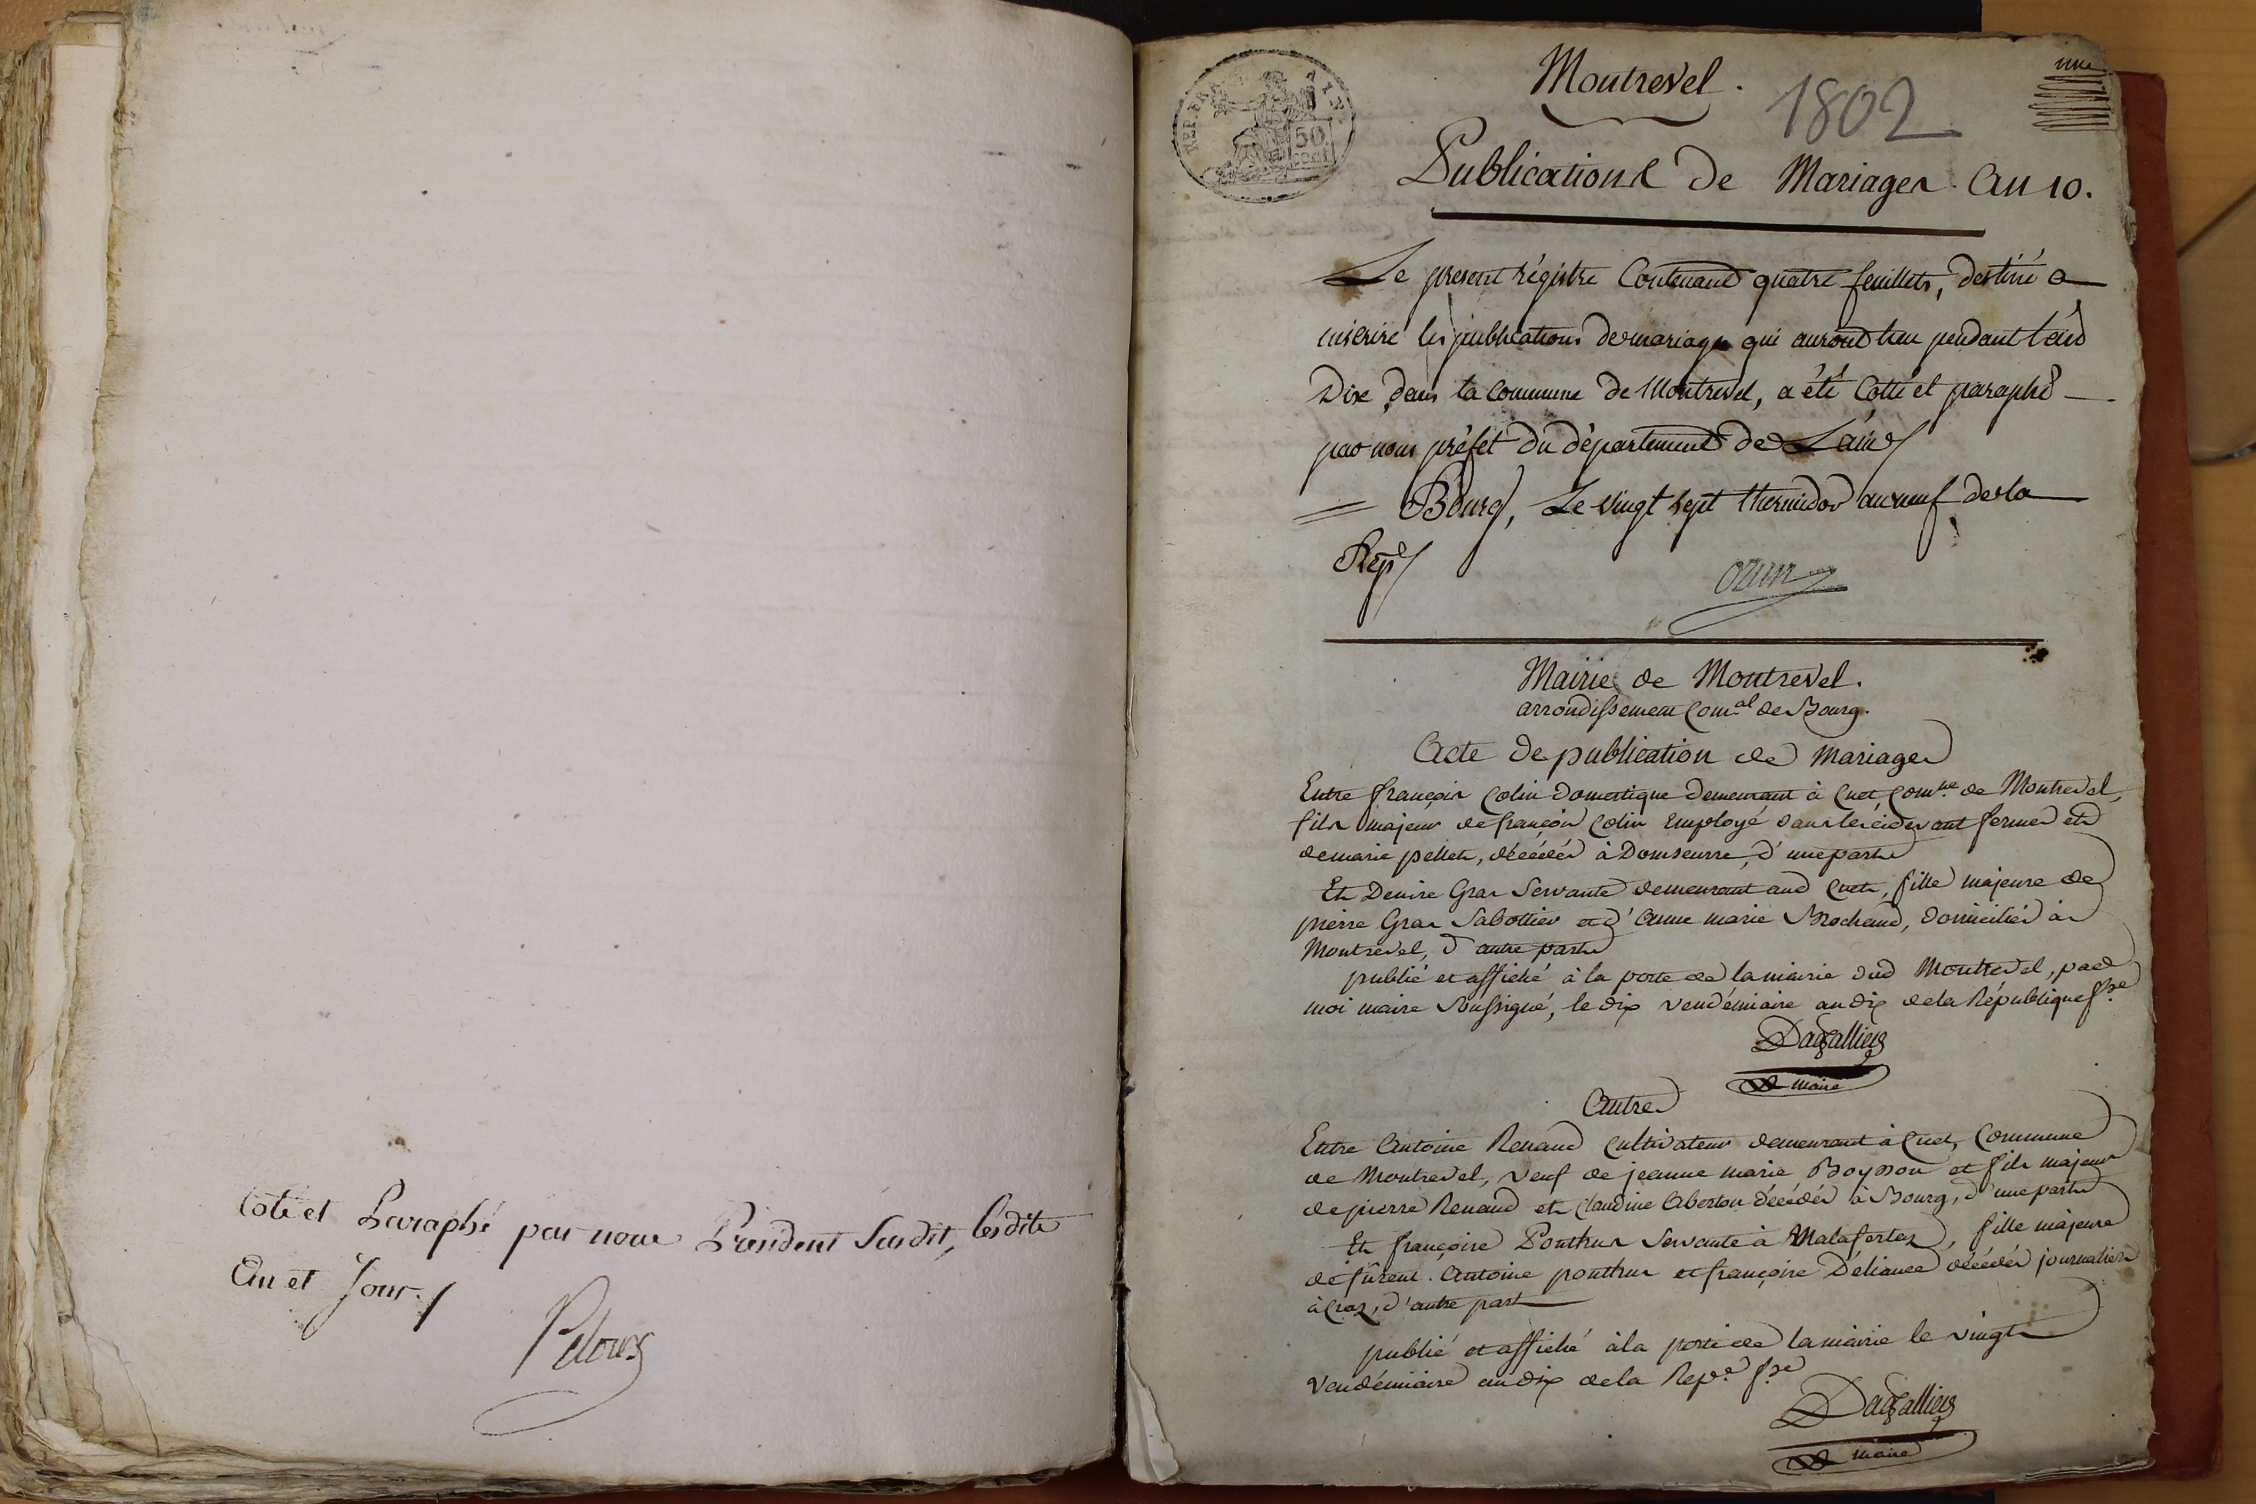 Coté et Paraphé par nous Président Susdit, lesdits
An et Jour.
Montrevel.
1802
une
REP. FRA
50
cent
Publications de Mariages. An 10.
Le present régistre Contenant quatre feuillets, destiné a
inscrire les publications de mariages qui auront lieu pendant l'an
Dix, dans la commune de Montrevel, a été Cotté et paraphé
par nous préfet du département de L'ain
Bourg, Le vingt sept thermidor an neuf de la
Repe
ozun
Mairie de Montrevel.
arrondissement Comal de Bourg.
Acte de publication de Mariage
Entre françois Colin Domestique demeurant à Cuet, Comne de Montrevel,
fils majeur de françois Colin Employé dans les cidevant fermes et
de marie pellet, décédés à Domseurre, d'une part
Et Denise Gras Servante demeurant aud Cuet, fille majeure de
pierre Gras Sabottier et d'Anne marie Brochand, domiciliés à
Montrevel, d'autre part
publié et affiché à la porte de la mairie dud Montrevel, par
moi maire Soussigné, le dix vendémiaire an dix de la République fse
Dagallier
maire
Autre
Entre Antoine Renaud Cultivateur demeurant à Cuet, Commune
de Montrevel, veuf de jeanne marie Boysson et fils majeur
de pierre Renaud et Claudine Aberton décédés à Bourg, d'une part
Et françoise Ponthus Servante à Malafertaz, fille majeure
de fûrent Antoine ponthus et françoise Déliance décédés journaliers
à Cras, d'autre part
publié et affiché à la porte de la mairie le vingt
vendémiaire an dix de la Repe fse
Dagallier
maire